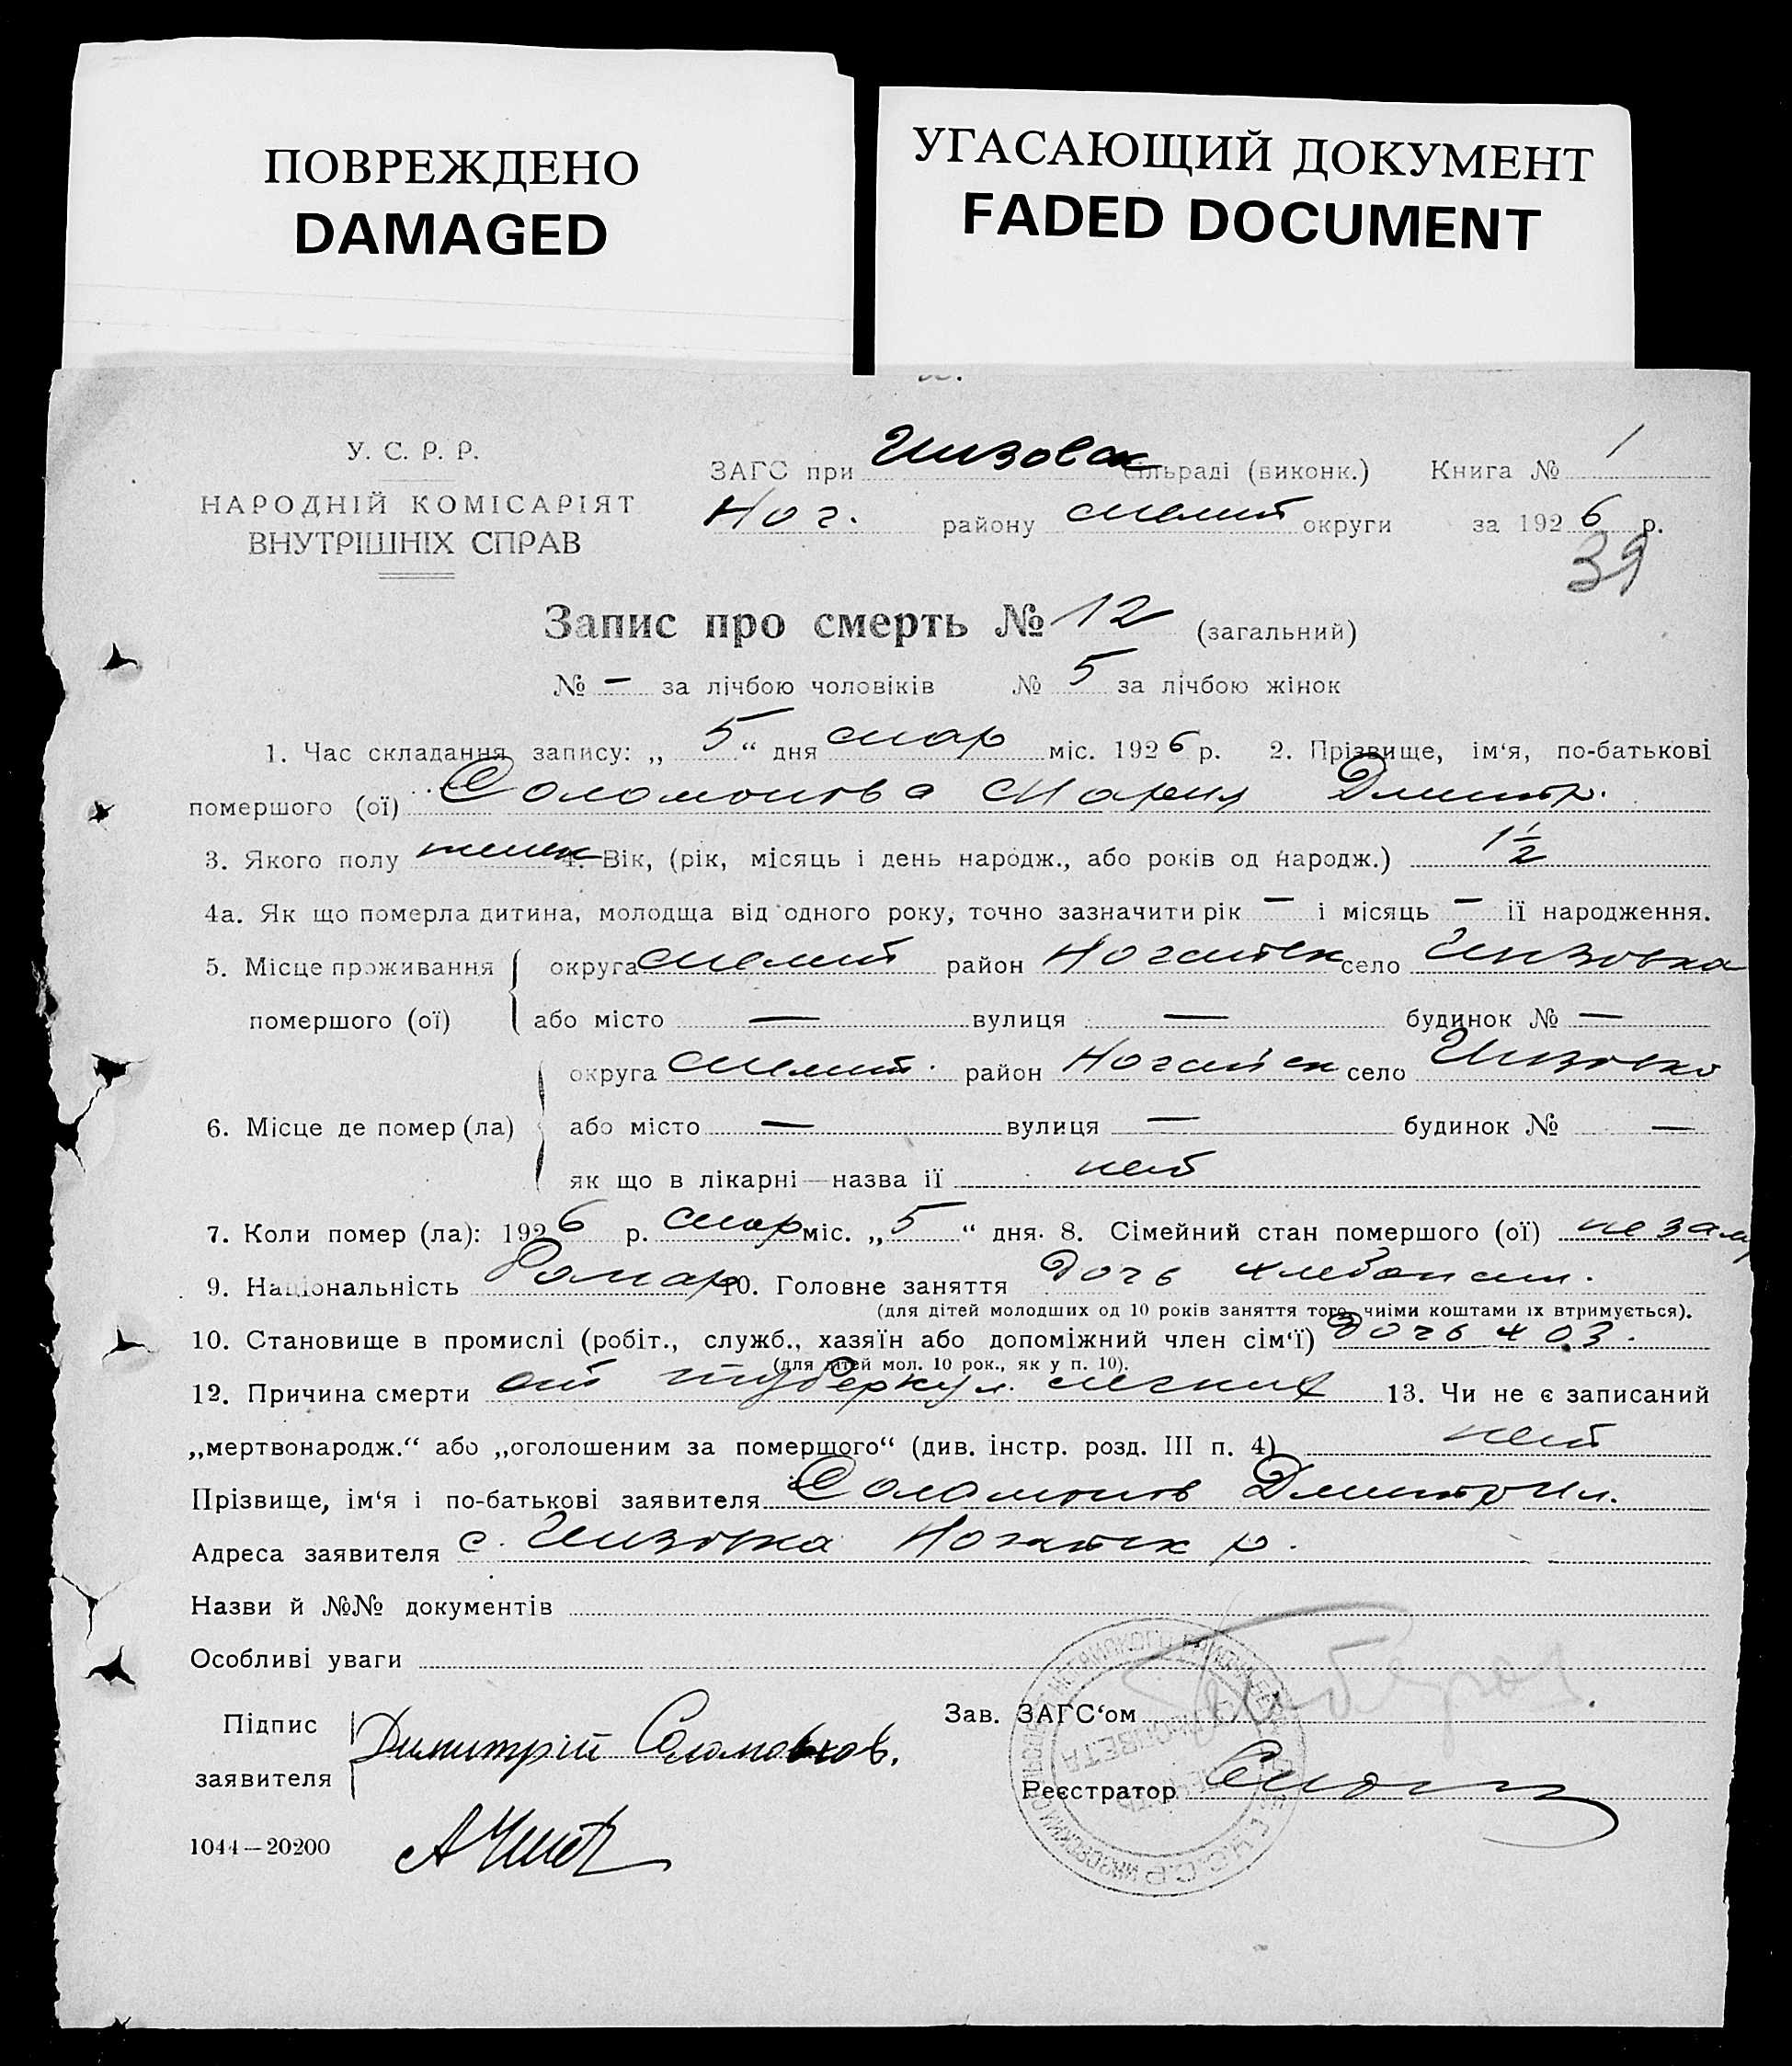 ПОВРЕЖДЕНО
DAMAGED
УГАСАЮЩИЙ ДОКУМЕНТ
FADED DOCUMENT
У. С. Р. Р.
НАРОДНІЙ КОМІСАРІЯТ
ВНУТРІШНІХ СПРАВ
ЗАГС при Инзовск сільраді (виконк.) Книга № 1
Ног. району Мелит округи за 1926 р.
39
Запис про смерть № 12 (загальний)
№ — за лічбою чоловіків № 5 за лічбою жінок
1. Час складання запису: „ 5 “ дня мар міс. 1926 р. 2. Прізвище, ім‘я, по-батькові
помершого (ої) Соломонова Мария Дмитр.
3. Якого полу женск 4. Вік, (рік, місяць і день народж., або років од народж.) 1½
4а. Як що померла дитина, молодща від одного року, точно зазначити рік — і місяць — її народження.
5. Місце проживання округа Мелит район Ногайск село Инзовка
помершого (ої) або місто — вулиця — будинок № —
округа Мелит. район Ногайск село Инзовка
6. Місце де помер (ла) або місто — вулиця — будинок № —
як що в лікарні—назва її нет
7. Коли помер (ла): 1926 р. мар міс. „ 5 “ дня. 8. Сімейний стан помершого (ої) не зам
9. Національність 10. Головне заняття Дочь хлебопаш.
(для дітей молодших од 10 років заняття того, чиїми коштами їх втримується).
10. Становище в промислі (робіт., служб., хазяїн або допоміжний член сім‘ї) Дочь хоз.
(для дітей мол. 10 рок., як у п. 10).
12. Причина смерти от туберкул. легких 13. Чи не є записаний
„мертвонародж.“ або „оголошеним за помершого“ (див. інстр. розд. III п. 4) нет
Прізвище, ім‘я і по-батькові заявителя Соломонов Дмитр Ил.
Адреса заявителя с. Инзовка Ногайск р.
Назви й №№ документів
Особливі уваги
Підпис
заявителя Димитрій Соломонов.
Зав. ЗАГС‘ом
Реєстратор
1044—20200